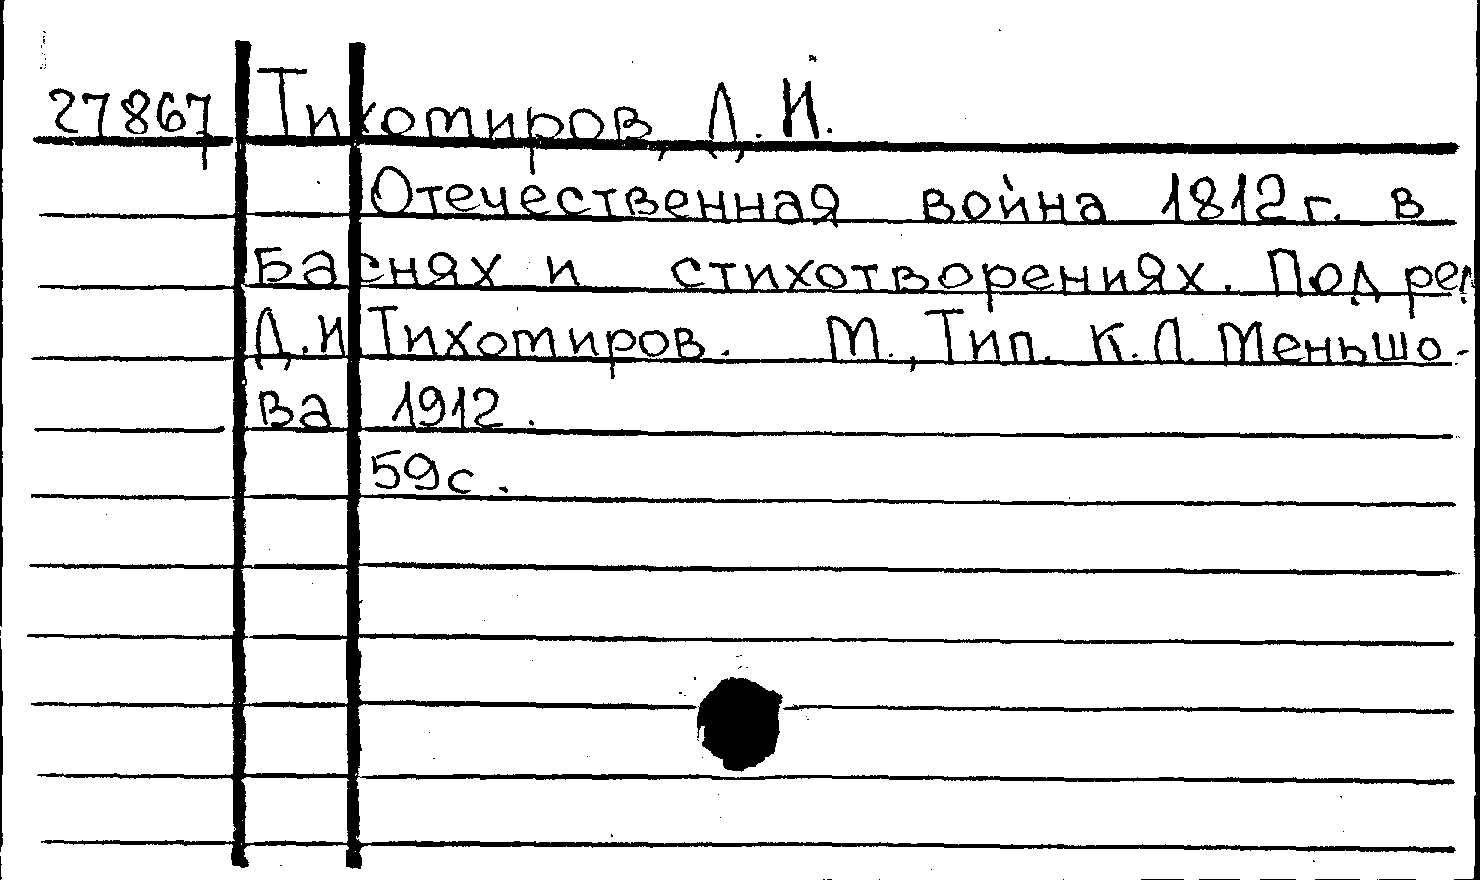 27867 Тихомиров, Д. И.
Отечественная война 1812 г. в
баснях и стихотворениях. Под ред
Д.И Тихомиров. М., Тип. К.Л. Меньшо-
ва 1912.
59с.